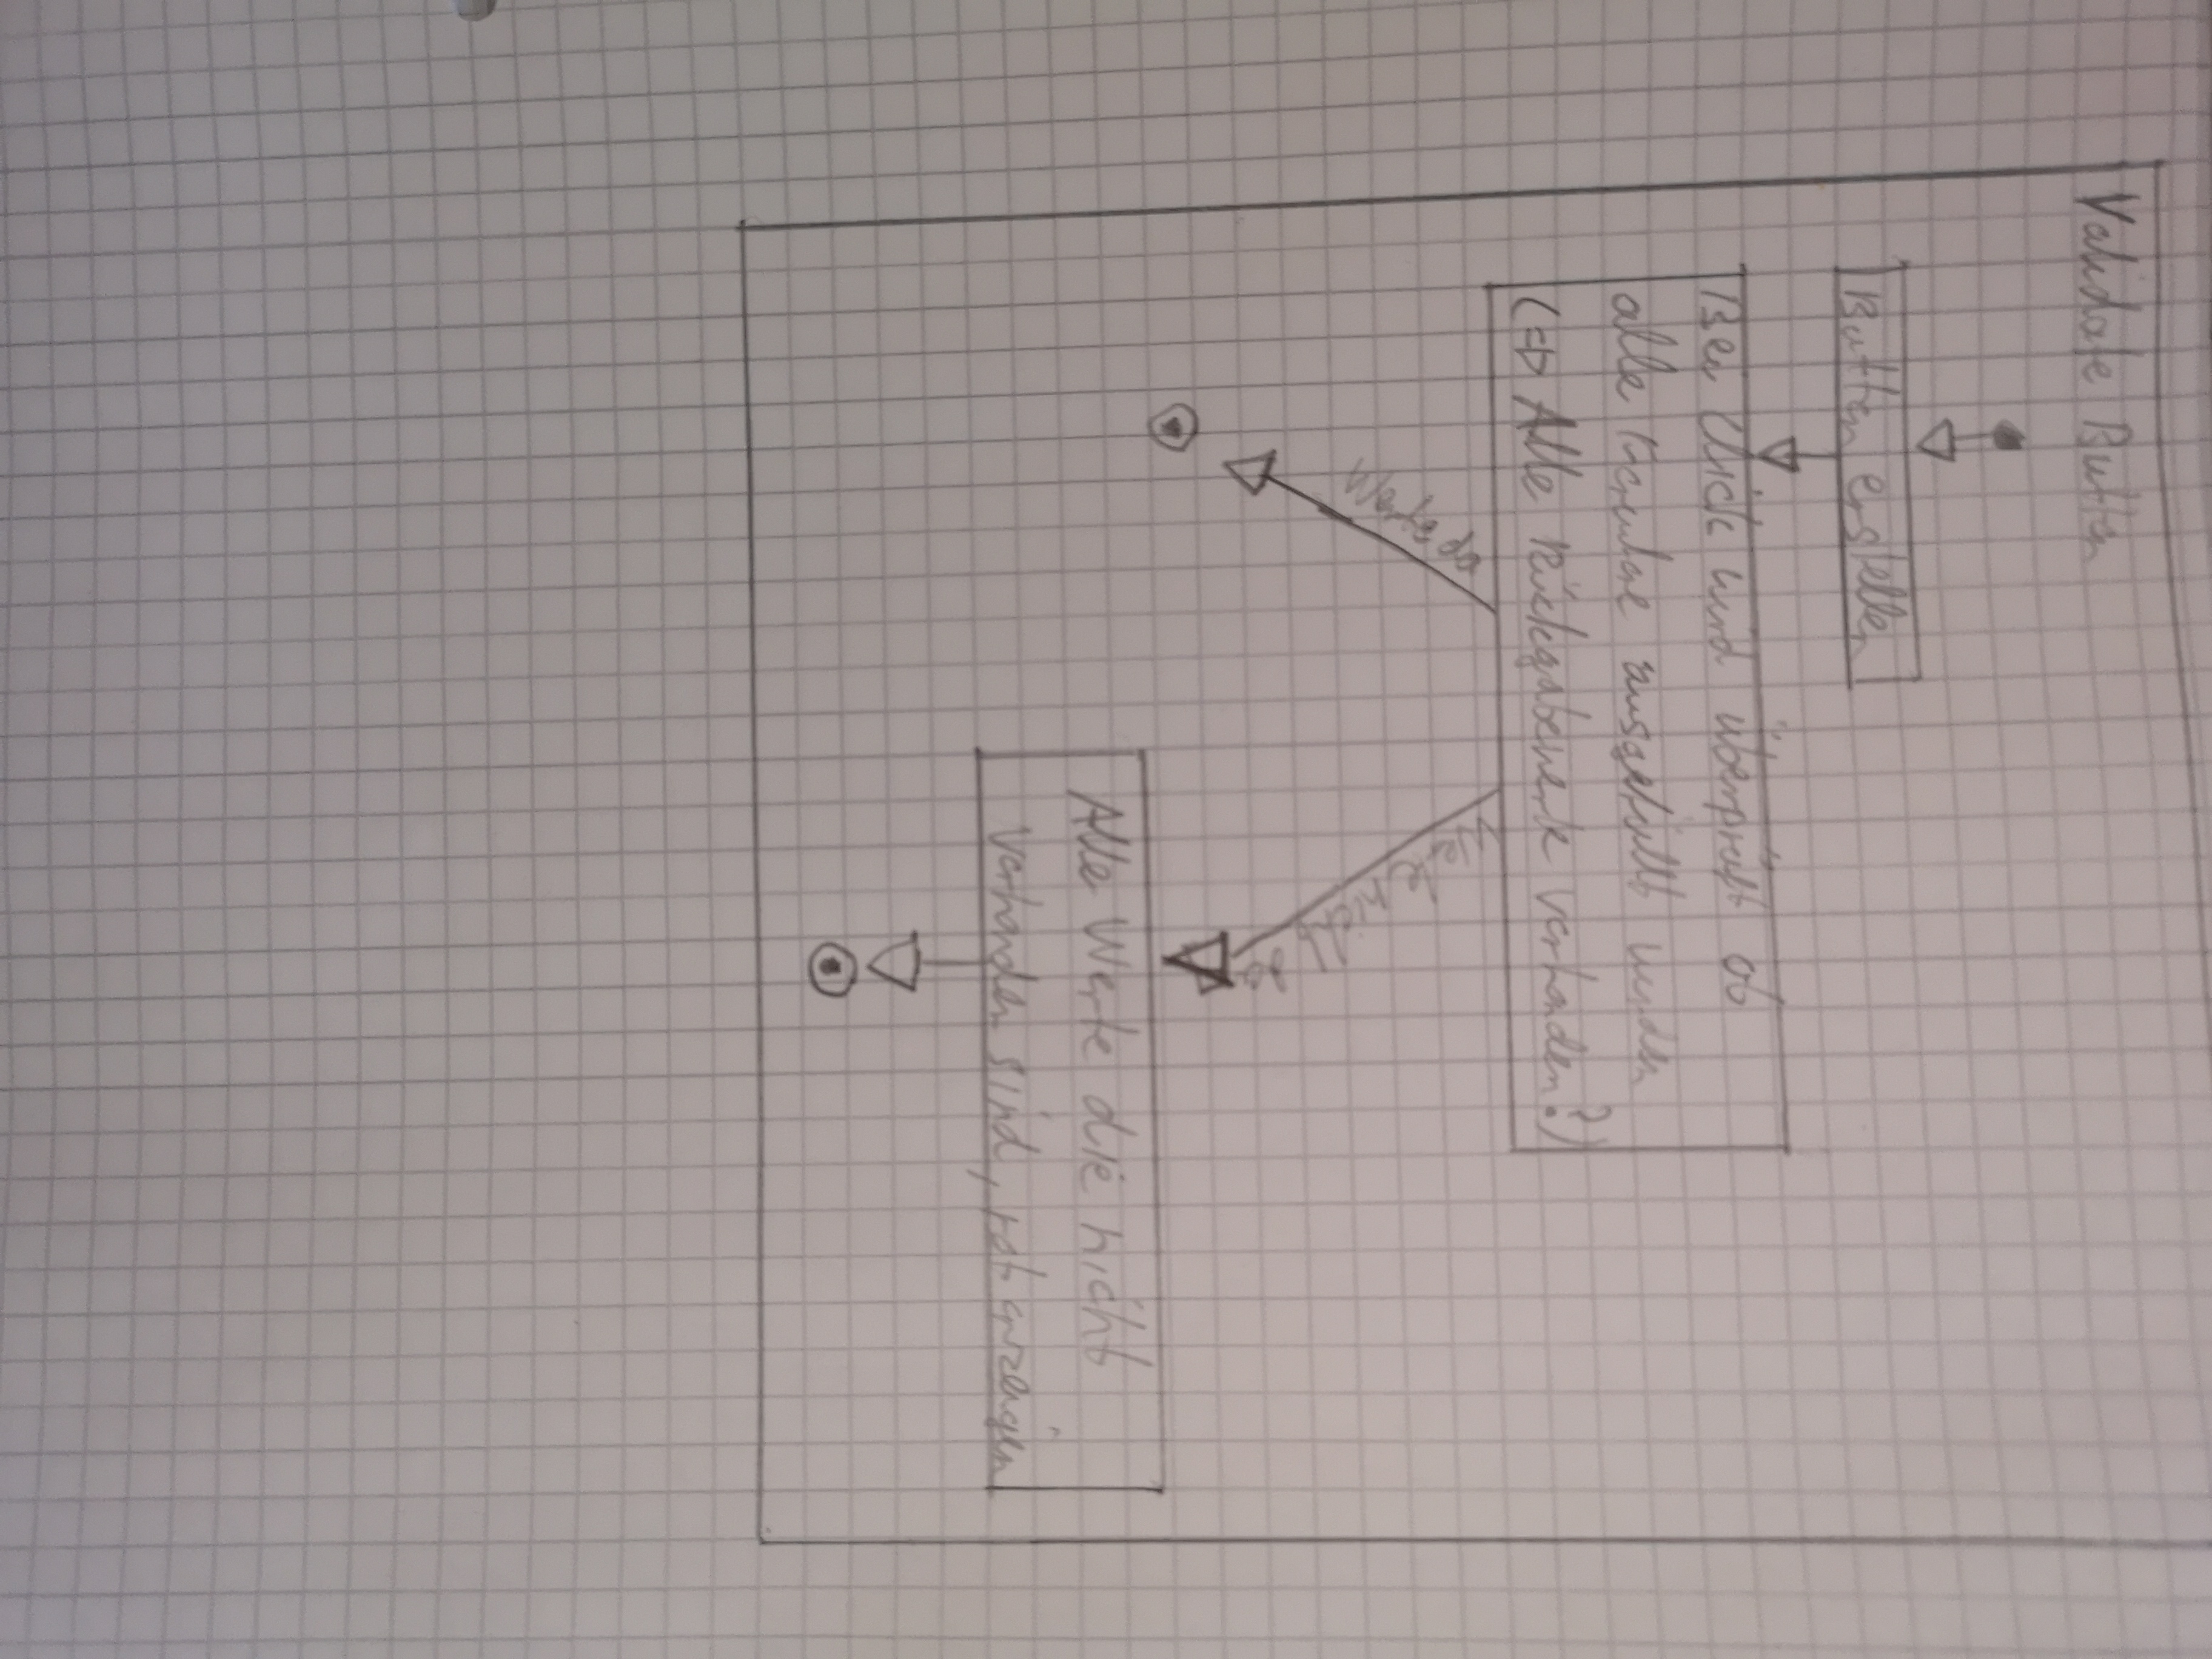 Validate Button
Button erstellen
Bei Click wird überprüft ob
alle Formulare ausgefüllt wurden
(=> Alle Rückgabewerte vorhanden?)
Werte da
Werte nicht da
Alle Werte die nicht
vorhanden sind, rot anzeigen